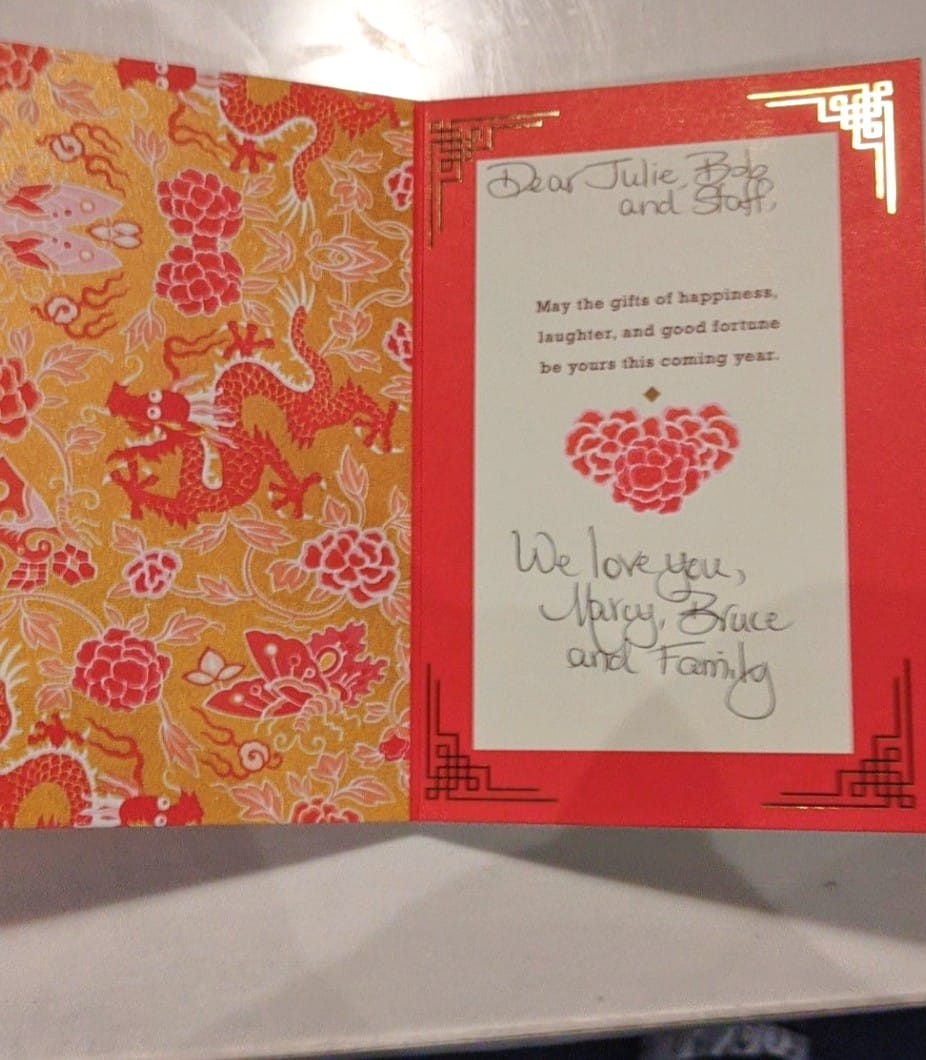 Dear Julie, Bob
and Staff,
May the gifts of happiness,
laughter, and good fortune
be yours this coming year.
We love you,
Marcy, Bruce
and Family